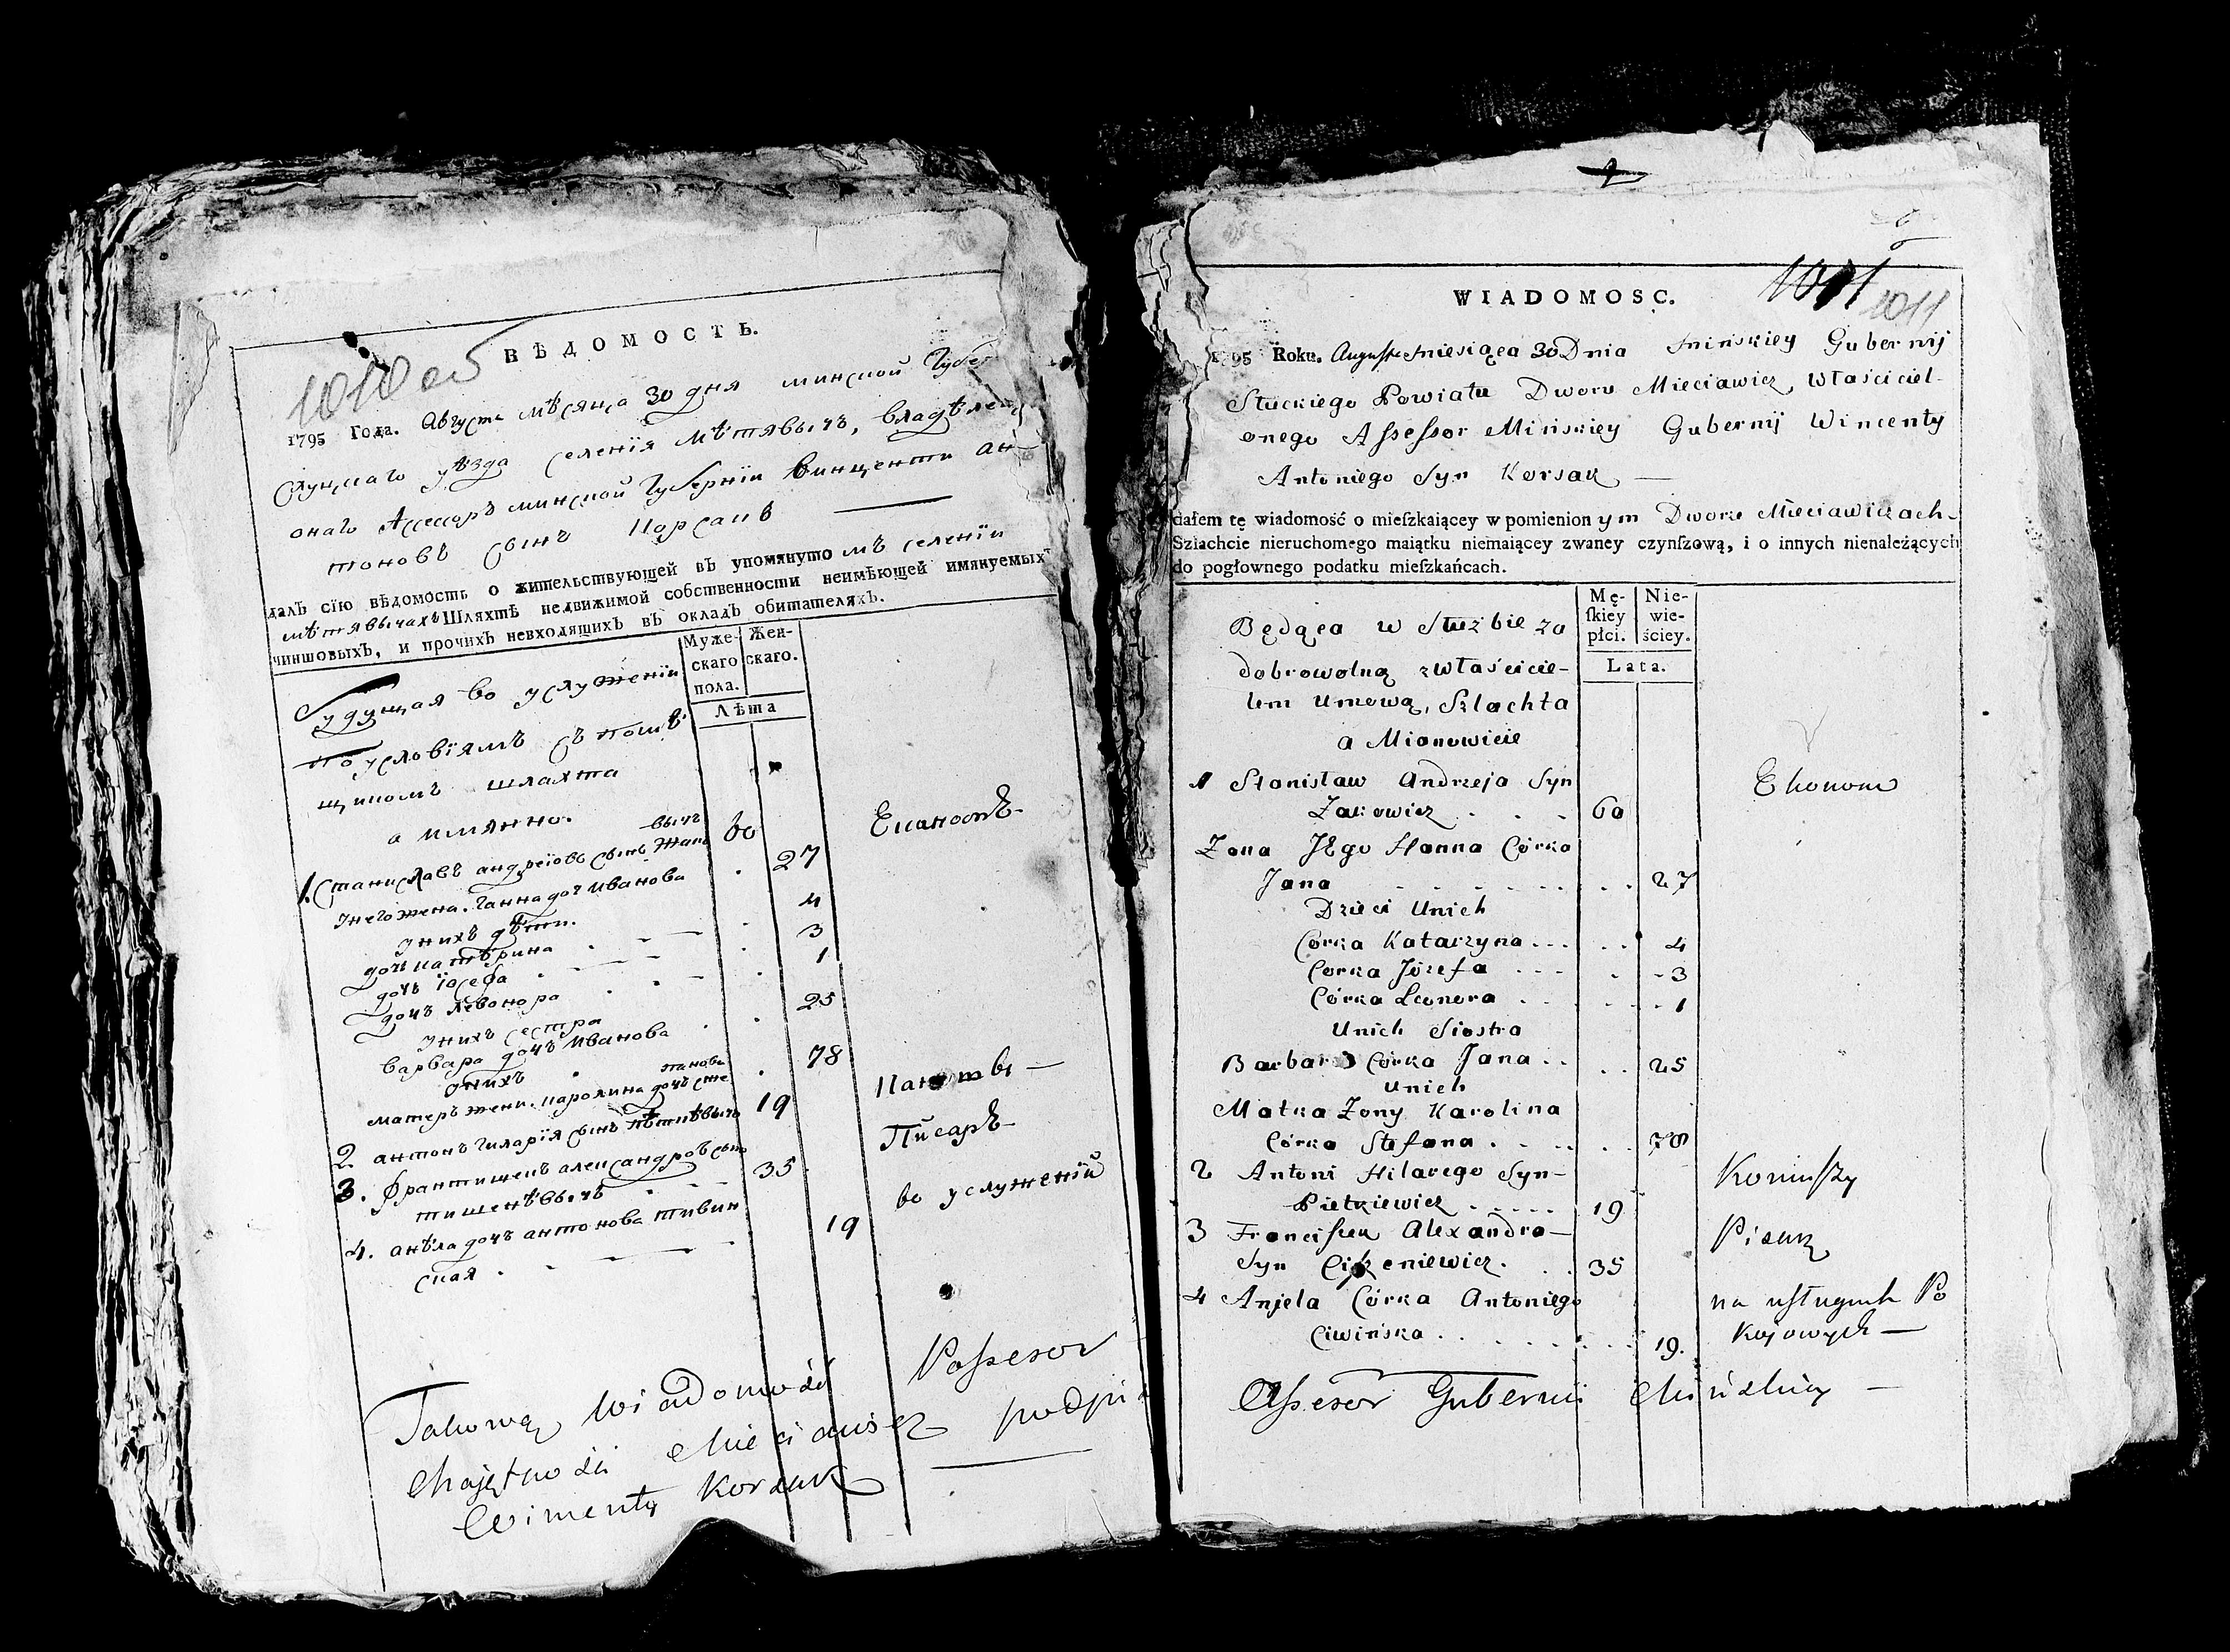 1010 об
ВѢДОМОСТЬ.
1795 Года. Августа мѣсяца 30 дня минской Губер
Слуцкаго уѣзда селенія Мѣтявычъ, владѣлец
онаго Ассесоръ минской Губерніи Винценти Ан-
тоновъ сынъ Корсакъ —
далъ сїю вѣдомость о жительствующей въ упомянуто мъ селеніи
мѣтявычахъ Шляхтѣ недвижимой собственности неимѣющей имянуемыхъ
чиншовыхъ, и прочихъ невходящихъ въ окладъ обитателяхъ.
Муже-скаго пола. Жен-скаго.
Лѣта
Будущая во услуженіи
по условіямъ съ помѣ
щикомъ шляхта
а имянно.
1. Станиславъ андреіовъ сынъ Жаковычъ 60 Еканомъ
у него жена. Ганна доч Иванова 27
у нихъ дѣти.
дочь катѣрина 4
дочь Іосефа 3
дочъ Левонора 1
у нихъ сестра
варвара дочъ Иванова 25
у нихъ
матерь жени. каролина дочъ степанова 78
2 антонъ гиларія сынъ Пѣткѣвычъ 19
3. францишекъ александровъ сынъ
тишенѣвычъ 35 Писаръ
4. анѣла дочъ антонова тивин
ская 19 во услуженій
Takową wiadomość Possesor
Majętności Mieciawicz podpi
Wincenty Korsak
1011
1011
WIADOMOSC.
1795 Roku. Augusta miesiąca 30 Dnia Minskiey Gubernij
Słuckiego Powiatu Dworu Mieciawicz, Właściciel
onego Assessor Mińskiey Gubernij Wincenty
Antoniego Syn Korsak —
dałem tę wiadomość o mieſzkaiącey w pomienion ym Dworze Mieciawiczach
Szlachcie nieruchomego maiątku niemaiącey zwaney czynſzową, i o innych nienależących
do pogłownego podatku mieſzkańcach.
Mę-ſkiey płci. Nie-wie-ściey.
Lata.
Będąca w Służbie za
dobrowolną z właścicie-
lem umową, Szlachta
a Mianowicie
1 Stanisław Andrzeja Syn Ekonom
Żakowicz 60
Żona Jego Hanna Córka
Jana 27
Dzieci Unich
Córka Katarzyna 4
Corka Józefa 3
Córka Leonora 1
Unich Siostra
Barbara Córka Jana 25
Unich
Matka Żony Karolina
Córka Stefana 78
2 Antoni Hilarego Syn Koniuszy
Pietkiewicz 19
3 Franciszek Alexandra Pisarz
Syn Ciszeniewicz. 35
4 Anjela Córka Antoniego na usługach Po
Ciwińska 19. kojowych —
Assesor Gubernii Mińskiey —